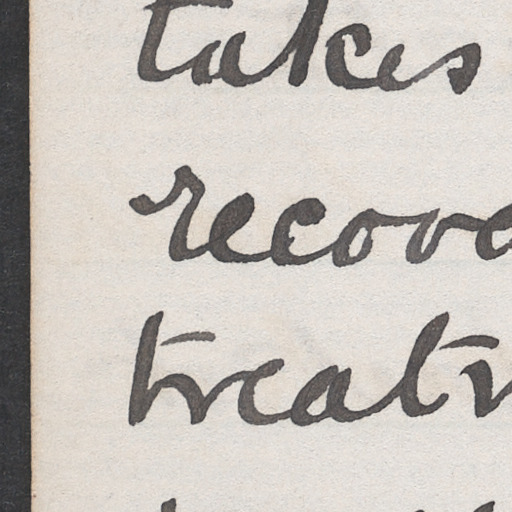 takes
recove
treatm